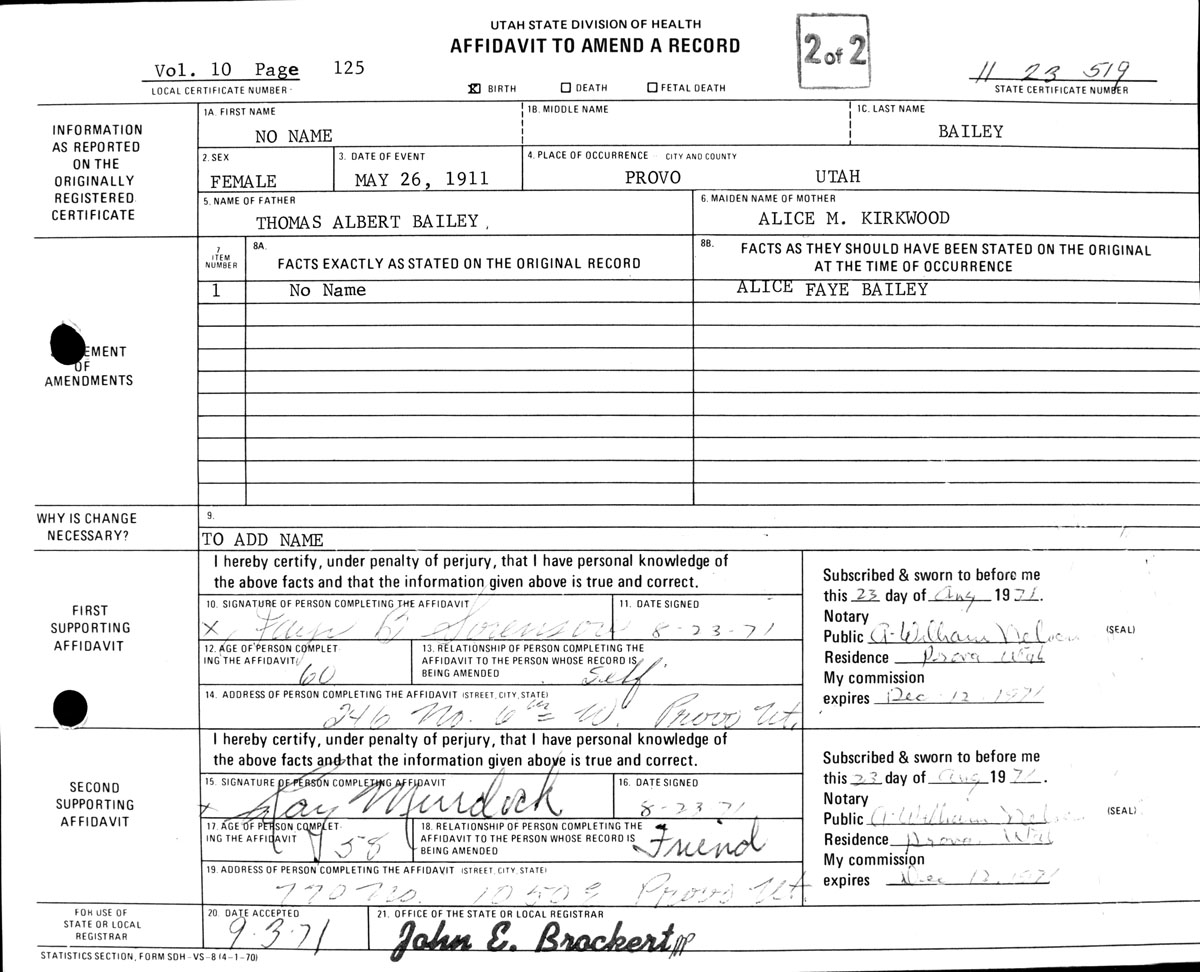 UTAH STATE DIVISION OF HEALTH
AFFIDAVIT TO AMEND A RECORD
2 of 2
Vol. 10 Page 125
LOCAL CERTIFICATE NUMBER
☒ BIRTH ☐ DEATH ☐ FETAL DEATH
11 23 519
STATE CERTIFICATE NUMBER
INFORMATION
AS REPORTED
ON THE
ORIGINALLY
REGISTERED
CERTIFICATE
1A. FIRST NAME 1B. MIDDLE NAME 1C. LAST NAME
NO NAME BAILEY
2. SEX 3. DATE OF EVENT 4. PLACE OF OCCURRENCE CITY AND COUNTY
FEMALE MAY 26, 1911 PROVO UTAH
5. NAME OF FATHER 6. MAIDEN NAME OF MOTHER
THOMAS ALBERT BAILEY, ALICE M. KIRKWOOD
EMENT
OF
AMENDMENTS
7
ITEM
NUMBER
8A.
FACTS EXACTLY AS STATED ON THE ORIGINAL RECORD
8B. FACTS AS THEY SHOULD HAVE BEEN STATED ON THE ORIGINAL
AT THE TIME OF OCCURRENCE
1 No Name ALICE FAYE BAILEY
WHY IS CHANGE
NECESSARY?
9.
TO ADD NAME
FIRST
SUPPORTING
AFFIDAVIT
I hereby certify, under penalty of perjury, that I have personal knowledge of
the above facts and that the information given above is true and correct.
10. SIGNATURE OF PERSON COMPLETING THE AFFIDAVIT 11. DATE SIGNED
X Faye B Sorenson 8-23-71
12. AGE OF PERSON COMPLET
ING THE AFFIDAVIT
60
13. RELATIONSHIP OF PERSON COMPLETING THE
AFFIDAVIT TO THE PERSON WHOSE RECORD IS
BEING AMENDED
Self
14. ADDRESS OF PERSON COMPLETING THE AFFIDAVIT (STREET, CITY, STATE)
246 No. 6th W. Provo Ut.
Subscribed & sworn to before me
this 23 day of Aug 1971.
Notary
Public A. William Nelson (SEAL)
Residence Provo Utah
My commission
expires Dec 12, 1971
SECOND
SUPPORTING
AFFIDAVIT
I hereby certify, under penalty of perjury, that I have personal knowledge of
the above facts and that the information given above is true and correct.
15. SIGNATURE OF PERSON COMPLETING AFFIDAVIT 16. DATE SIGNED
x Ray Murdock 8-23-71
17. AGE OF PERSON COMPLET
ING THE AFFIDAVIT
58
18. RELATIONSHIP OF PERSON COMPLETING THE
AFFIDAVIT TO THE PERSON WHOSE RECORD IS
BEING AMENDED
Friend
19. ADDRESS OF PERSON COMPLETING THE AFFIDAVIT (STREET, CITY, STATE)
770 No. 1050 E Provo Ut.
Subscribed & sworn to before me
this 23 day of Aug 1971.
Notary
Public A. William Nelson (SEAL)
Residence Provo Utah
My commission
expires Dec 12, 1971
FOR USE OF
STATE OR LOCAL
REGISTRAR
20. DATE ACCEPTED
9-3-71
21. OFFICE OF THE STATE OR LOCAL REGISTRAR
John E. Brockert
STATISTICS SECTION, FORM SDH-VS-8 (4-1-70)